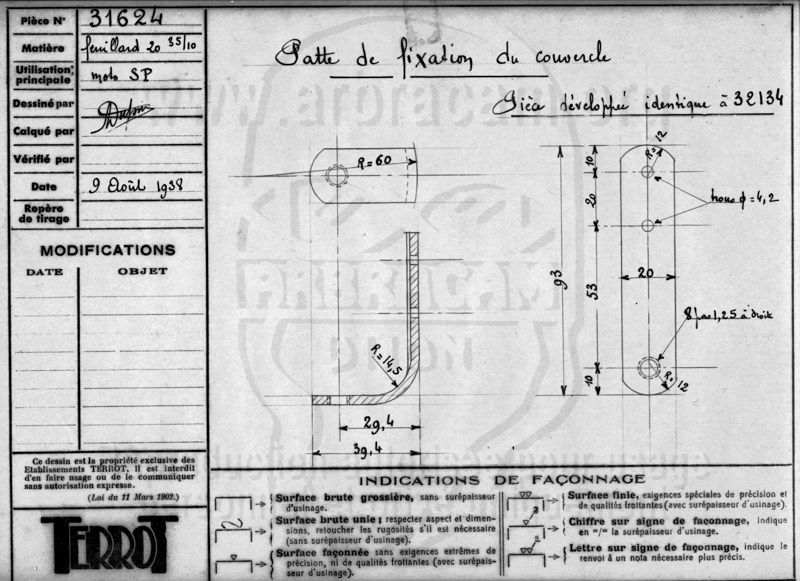 Pièce N° 31624
Matière feuillard 20 35/10
Utilisation principale moto SP
Dessiné par Dupuis
Calqué par
Vérifié par
Date 9 Août 1938
Repère de tirage
MODIFICATIONS
DATE OBJET
Ce dessin est la propriété exclusive des
Etablissements TERROT, il est interdit
d'en faire usage ou de le communiquer
sans autorisation expresse.
(Loi du 11 Mars 1902.)
TERROT
Patte de fixation du couvercle
Pièce développée identique à 32134
R=60
R=14,5
29,4
39,4
R=12
10
20
trous ϕ=4,2
93
53
20
8 pas 1,25 à droite
10
R=12
www.arbracam.org
ARBRACAM
DIJON
INDICATIONS DE FAÇONNAGE
Surface brute grossière, sans surépaisseur
d'usinage.
Surface brute unie; respecter aspect et dimen-
sions, retoucher les rugosités s'il est nécessaire
(sans surépaisseur d'usinage).
Surface façonnée sans exigences extrêmes de
précision, ni de qualités frottantes (avec surépais-
seur d'usinage).
Surface finie, exigences spéciales de précision et
de qualités frottantes (avec surépaisseur d'usinage).
Chiffre sur signe de façonnage, indique
en "/" la surépaisseur d'usinage.
Lettre sur signe de façonnage, indique le
renvoi à un nota nécessaire plus précis.